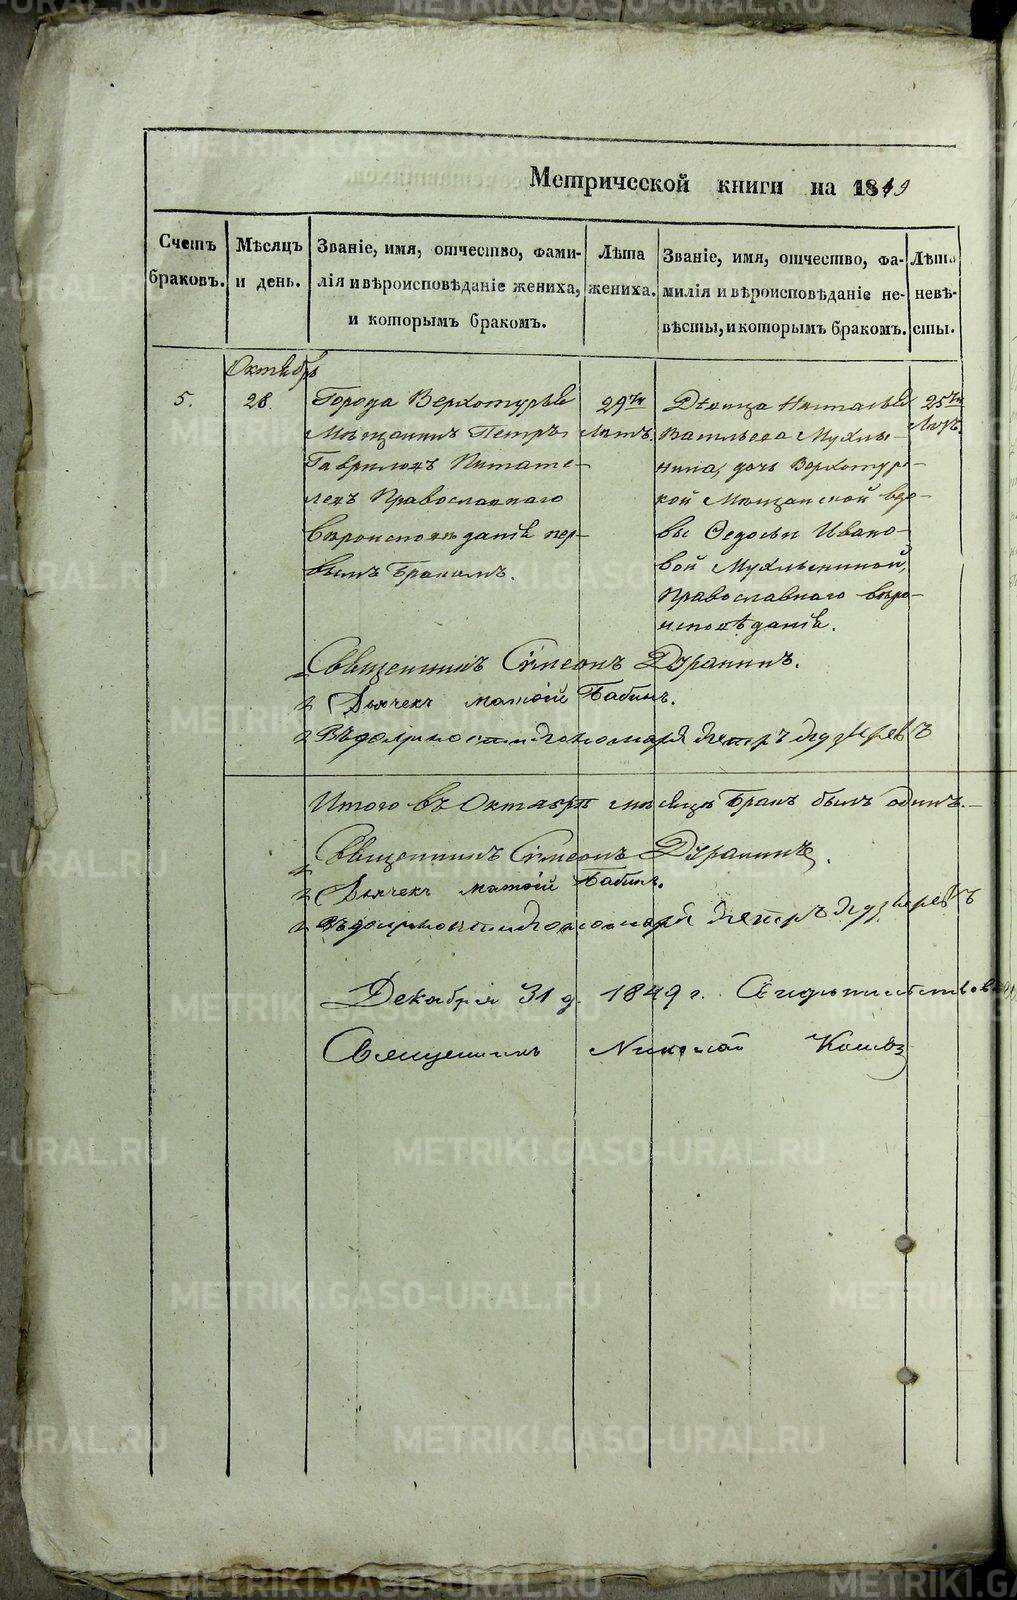 Метрической книги на 1849
Счетъ браковъ.
Мѣсяцъ и день.
Званіе, имя, отчество, фами-
лія и вѣроисповѣданіе жениха,
и которымъ бракомъ.
Лѣта жениха.
Званіе, имя, отчество, фа-
милія и вѣроисповѣданіе не-
вѣсты, и которымъ бракомъ.
Лѣта невѣ-
сты.
Октябрь
5.
28.
Города Верхотурья
Мѣщанинъ Петръ
Гавриловъ Питате-
левъ Православнаго
вѣроисповѣданія пер-
вымъ бракомъ.
29ти
Лѣтъ.
Дѣвица Наталья
Васильева Мухлы-
нина, дочь Верхотурс-
кой Мѣщанской вдо-
вы Ѳедосьи Ивано-
вой Мухлыниной,
Православнаго вѣро-
исповѣданія.
25ти
Лѣтъ.
Священникъ Симеонъ
Дьячекъ Матвій Бабинъ.
Въ должности Пономаря Петръ
Итого въ Октябрѣ мѣсяцѣ бракъ былъ одинъ.
Священникъ Симеонъ
Дьячекъ Матвій Бабинъ.
Въ должности Пономаря Петръ
Декабря 31 д. 1849 г. Свидѣтельствовалъ
Священникъ Николай
METRIKI.GASO-URAL.RU